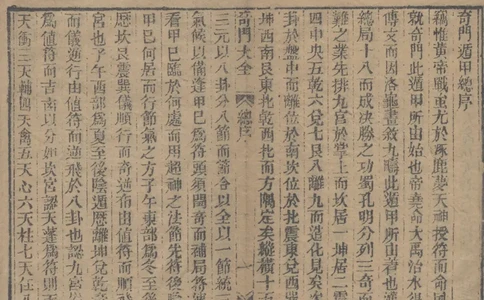 奇門遁甲總序
稱惟黃帝戰蚩尤於涿鹿夢天神授符而命
就奇門此遁甲所由始也帝堯命大禹治水得
傳文而因洛龜畫敘九疇此遁甲所由著也
總局十八而成決勝之功蜀孔明分列三奇而
難之業先排九宮於掌上而坎居一坤居二
四中央五乾六兌七艮八離九而造化見矣
卦於盤中而離位於南坎位於北震東兌西
坤西南艮東北乾西北而方隅定矣縱橫十五
奇門大全 總序
三元以八卦分八節而節各以全以一節統
氣候以備逢甲巳爲符頭須閏奇而補局符
看甲巳臨於何處而用超神之法節先符後
甲巳何居而行節氣之方子午東部爲冬至後
歷坎艮震巽儀順行而奇逆布由值符而順
宮也子午西部爲夏至後陰遁歷離坤兌乾
而儀逆行由值符而逆飛於八卦也認九宮
爲值符而吉南以宮認天蓬
天衝三天輔四天禽五天心六天柱七天任八